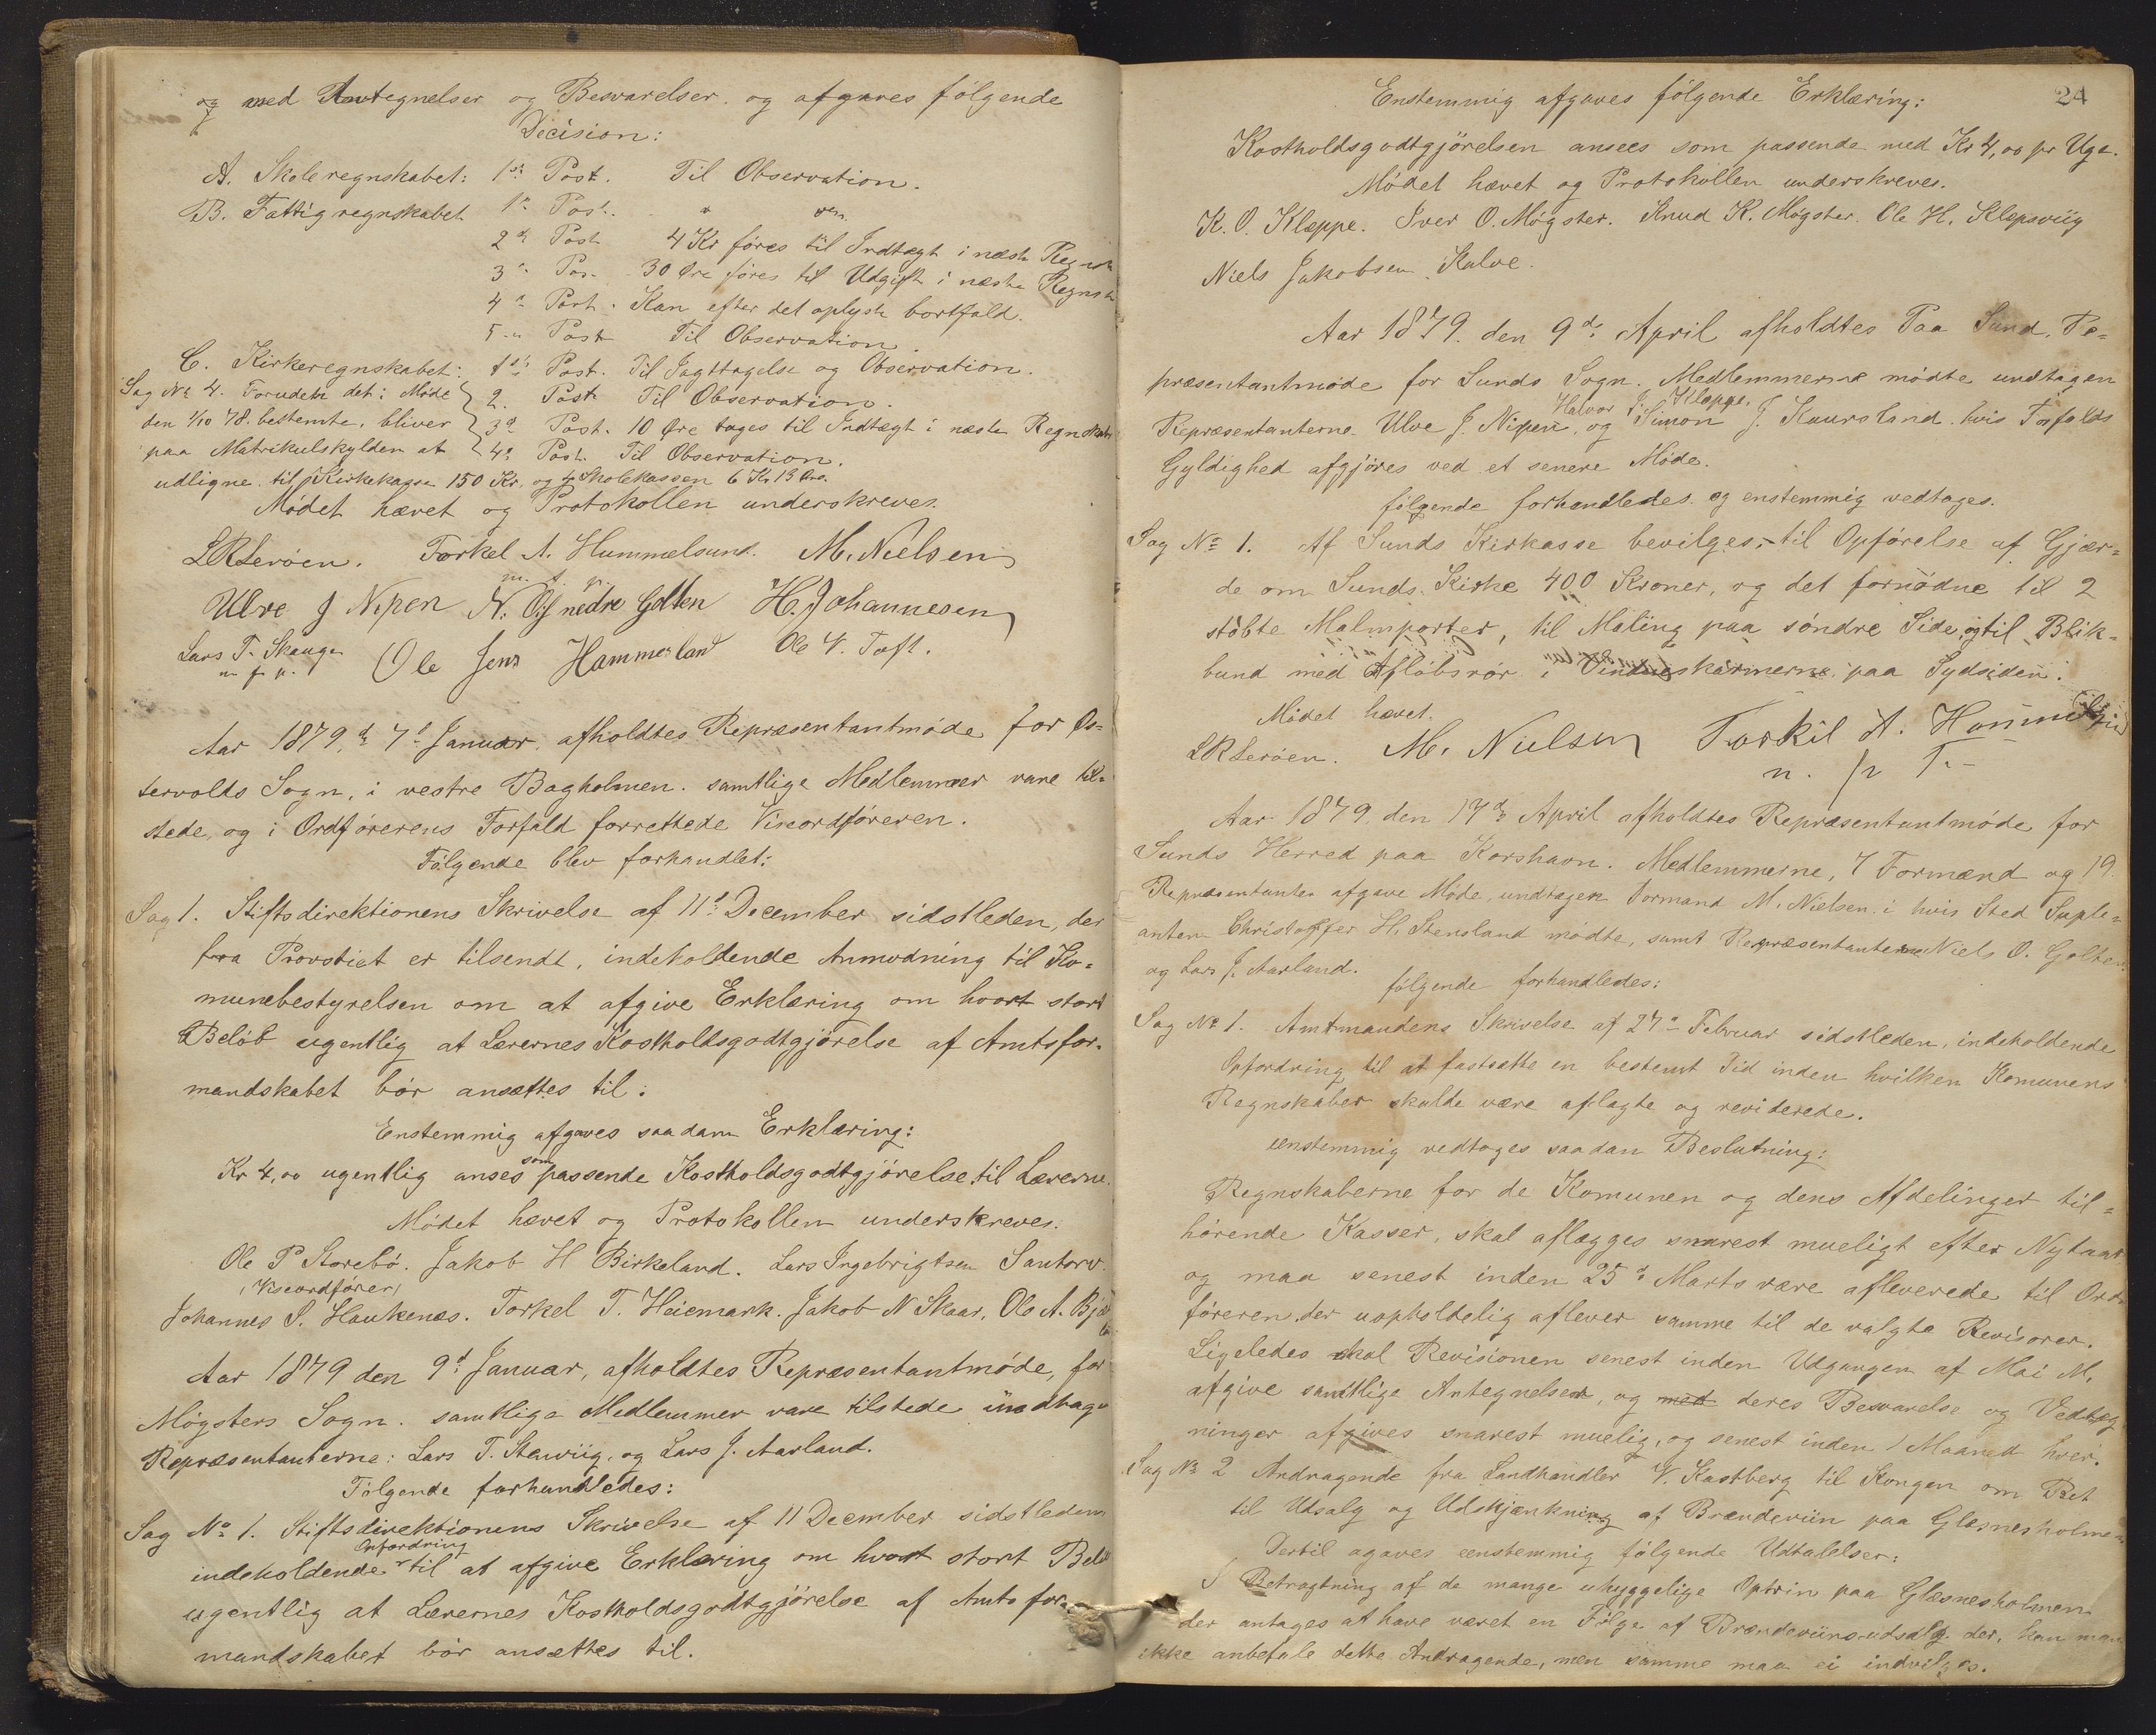 og med Antegnelser og Besvarelser, og afgaves følgende
Decision:
A. Skoleregnskabet: 1ste Post. Til Observation.
B. Fattigregnskabet 1ste Post. " "
2den Post 4 Kr føres til Indtægt i næste Regnsk
3die Post 30 Øre føres til Udgift i næste Regnsk
4de Post. Kan efter det oplyste bortfald.
5te Post Til Observation
C. Kirkeregnskabet: 1ste Post. Til Iagttagelse og Observation.
2. Post Til Observation.
3die Post. 10 Øre tages til Indtægt i næste Regnskab
4de Post. Til Observation.
Sag No 4. Foruden det i Møde
den 1/10 78. bestemte, bliver
paa Matrikulskylden at
udligne til Kirkekassen 150 Kr. og til Skolekassen 6 Kr 13 Øre.
Mødet hævet og Protokollen underskreves.
L R Lerøen. Torkel A. Hummelsund. M. Nielsen
m. f. p.
Ulve J Nipen N. O. nedre Golten H. Johannesen
Lars T. Skauge Ole Jens Hammersland Ole V. Toft.
m f p.
Aar 1879, d. 7d Januar, afholdtes Repræsentantmøde for Øs-
tervolds Sogn, i vestre Bagholmen. samtlige Medlemmer vare til-
stede, og i Ordførerens Forfald forrettede Viseordføreren.
Følgende blev forhandlet:
Sag 1. Stiftsdirektionens Skrivelse af 11d December sidstleden, der
fra Provstiet er tilsendt, indeholdende Anmodning til Ko-
munebestyrelsen om at afgive Erklæring om hvort stort
Beløb ugentlig at Lærernes Kostholdsgodtgjørelse af Amtsfor-
mandskabet bør ansættes til:
Enstemmig afgaves saadan Erklæring:
Kr 4,00 ugentlig anses som passende Kostholdsgodtgjørelse til Lærerne.
Mødet hævet og Protokollen underskreves.
Ole P Storebø. Jakob H Birkeland. Lars Ingebrigtsen Santorv.
(Viseordfører)
Johannes S. Haukenæs. Torkel T. Heiemark. Jakob N Skaar, Ole A. Bjel
Aar 1879 den 9d Januar, afholdtes Repræsentantmøde, for
Møgsters Sogn. samtlige Medlemmer vare tilstede undtagen
Repræsentanterne: Lars T. Stenviig, og Lars J. Aarland.
Følgende forhandledes:
Sag No 1. Stiftsdirektionens Skrivelse af 11 December sidstleden
indeholdende Opfordring til at afgive Erklæring om hvort stort Beløb
ugentlig at Lærernes Kostholdsgodtgjørelse af Amtsfor-
mandskabet bør ansættes til.
24
Enstemmig afgaves følgende Erklæring:
Kostholdsgodtgjørelsen ansees som passende med Kr 4,00 pr Uge.
Mødet hævet og Protokollen underskreves.
K. O. Kleppe. Iver O. Møgster. Knud K. Møgster. Ole H. Klepsviig
Niels Jakobsen Kalve.
Aar 1879. den 9de April afholdtes Paa Sund, Re-
præsentantmøde for Sunds Sogn. Medlemmerne mødte undtagen
Repræsentanterne Ulve J. Nipen, Halvor J. Kleppe, og Simon J. Kaursland. hvis Forfalds
Gyldighed afgjøres ved et senere Møde.
følgende forhandledes og enstemmig vedtages.
Sag No 1. Af Sunds Kirkasse bevilges, til Opførelse af Gjær-
de om Sunds Kirke 400 Kroner, og det fornødne til 2
støbte Malmporter, til Maling paa søndre Side, og til Blik-
bund med Afløbsrør i Vindueskarmerne paa Sydsiden.
Mødet hævet.
L R Lerøen. M. Nielsen Torkil A. Hommelsund
m. f. p.
Aar 1879 den 17de April afholdtes Repræsentantmøde for
Sunds Herred paa Korshavn. Medlemmerne, 7 Formænd og 19
Repræsentanter afgave Møde, undtagen Formand M. Nielsen i hvis Sted Suple-
anten Christoffer H. Stensland mødte, samt Repræsentanterne Niels O. Golten
og Lars J. Aarland.
følgende forhandledes:
Sag No 1. Amtmandens Skrivelse af 27de Februar sidstleden, indeholdende
Opfordring til at fastsætte en bestemt Tid inden hvilken Komunens
Regnskaber skulde være aflagte og reviderede.
eenstemmig vedtages saadan Beslutning:
Regnskaberne for de Komunen og dens Afdelinger til-
hørende Kasser, skal aflægges snarest mueligt efter Nytaar
og maa senest inden 25de Marts være afleverede til Ord-
føreren der uopholdelig aflever samme til de valgte Revisorer.
Ligeledes skal Revisionen senest inden Udgangen af Mai M,
afgive samtlige Antegnelser, og med deres Besvarelse og Vedteg
ninger afgives snarest muelig, og senest inden 1 Maaned hver.
Sag No 2 Andragende fra Landhandler V. Kastberg til Kongen om Ret
til Udsalg og Udskjænkning af Brændeviin paa Glesnesholmen
Dertil agaves eenstemmig følgende Udtalelser:
I Betragtning af de mange uhyggelige Optrin paa Glesnesholmen
der antages at have været en Følge af Brændeviinsudsalg der, kan man
ikke anbefale dette Andragende, men samme maa ei indvilges.